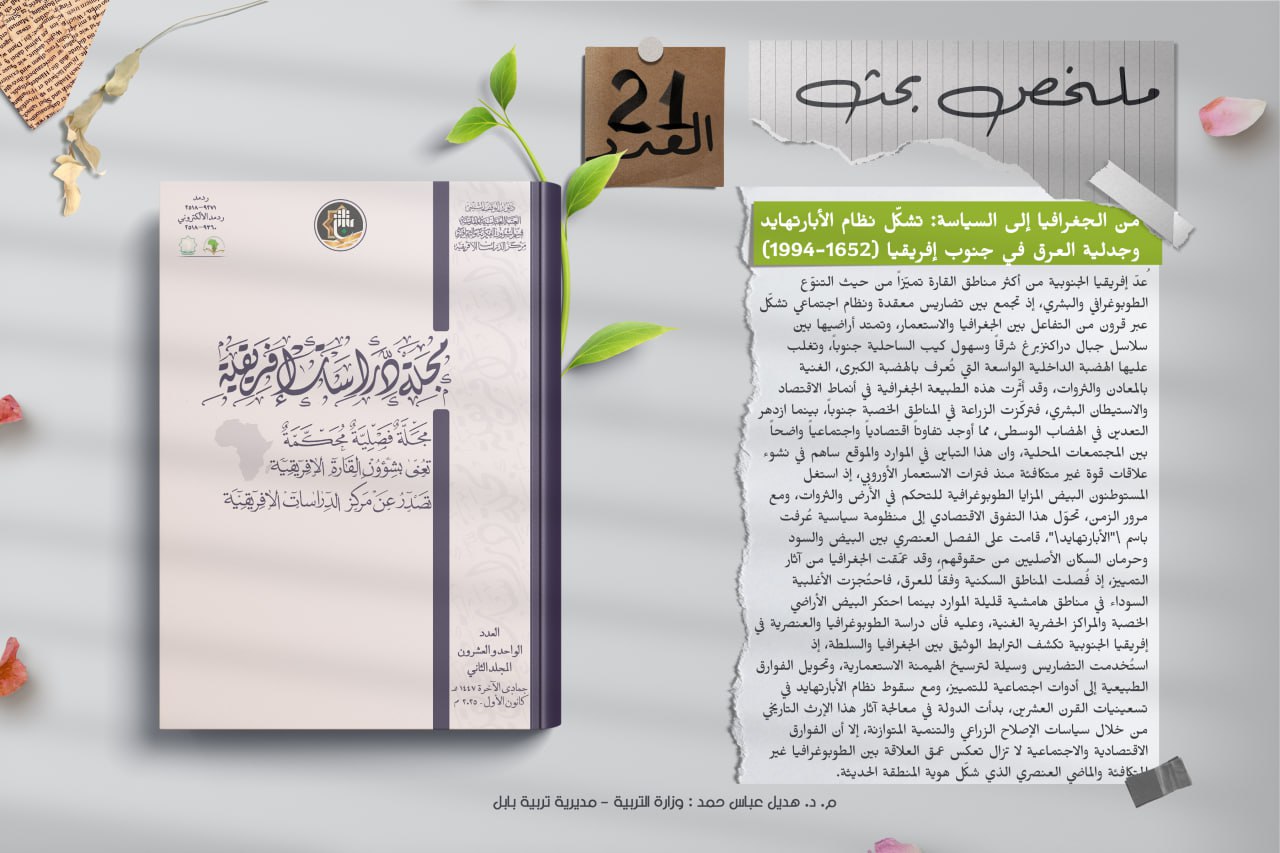 ملخص بحث
21
العدد
من الجغرافيا إلى السياسة: تشكّل نظام الأبارتهايد
وجدلية العرق في جنوب إفريقيا (1652-1994)
ُعدّ إفريقيا الجنوبية من أكثر مناطق القارة تميّزاً من حيث التنوّع
الطوبوغرافي والبشري، إذ تجمع بين تضاريس معقدة ونظام اجتماعي تشكّل
عبر قرون من التفاعل بين الجغرافيا والاستعمار، وتمتد أراضيها بين
سلاسل جبال دراكنزبرغ شرقاً وسهول كيب الساحلية جنوباً، وتغلب
عليها الهضبة الداخلية الواسعة التي تُعرف بالهضبة الكبرى، الغنية
بالمعادن والثروات، وقد أثّرت هذه الطبيعة الجغرافية في أنماط الاقتصاد
والاستيطان البشري، فتركّزت الزراعة في المناطق الخصبة جنوباً، بينما ازدهر
التعدين في الهضاب الوسطى، مما أوجد تفاوتاً اقتصادياً واجتماعياً واضحاً
بين المجتمعات المحلية، وان هذا التباين في الموارد والموقع ساهم في نشوء
علاقات قوة غير متكافئة منذ فترات الاستعمار الأوروبي، إذ استغل
المستوطنون البيض المزايا الطوبوغرافية للتحكم في الأرض والثروات، ومع
مرور الزمن، تحوّل هذا التفوق الاقتصادي إلى منظومة سياسية عُرفت
باسم \"الأبارتهايد\"، قامت على الفصل العنصري بين البيض والسود
وحرمان السكان الأصليين من حقوقهم، وقد عمّقت الجغرافيا من آثار
التمييز، إذ فُصلت المناطق السكنية وفقاً للعرق، فاحتُجزت الأغلبية
السوداء في مناطق هامشية قليلة الموارد بينما احتكر البيض الأراضي
الخصبة والمراكز الحضرية الغنية، وعليه فأن دراسة الطوبوغرافيا والعنصرية في
إفريقيا الجنوبية تكشف الترابط الوثيق بين الجغرافيا والسلطة، إذ
استُخدمت التضاريس وسيلة لترسيخ الهيمنة الاستعمارية، وتحويل الفوارق
الطبيعية إلى أدوات اجتماعية للتمييز، ومع سقوط نظام الأبارتهايد في
تسعينيات القرن العشرين، بدأت الدولة في معالجة آثار هذا الإرث التاريخي
من خلال سياسات الإصلاح الزراعي والتنمية المتوازنة، إلا أن الفوارق
الاقتصادية والاجتماعية لا تزال تعكس عمق العلاقة بين الطوبوغرافيا غير
المتكافئة والماضي العنصري الذي شكّل هوية المنطقة الحديثة.
م. د. هديل عباس حمد : وزارة التربية - مديرية تربية بابل
ردمد
٢٥١٨-٩٢٧١
ردمد الالكتروني
٢٥١٨-٩٣٦٠
ديوان الوقف الشيعي
مركز الدراسات الإفريقية
مجلة دراسات إفريقية
مجلة فصلية محكمة
تعنى بشؤون القارة الإفريقية
تصدر عن مركز الدراسات الإفريقية
العدد
الواحد والعشرون
المجلد الثاني
جمادى الآخرة ١٤٤٧ هـ
كانون الأول . ٢٠٢٥ م